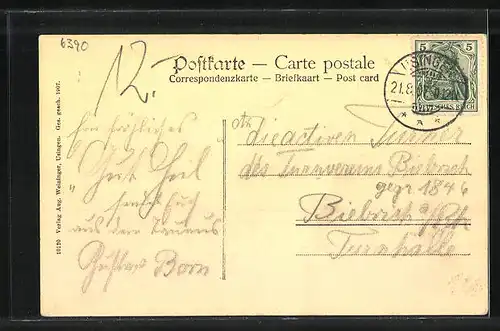 6390
12.
Postkarte – Carte postale
Correspondenzkarte – Briefkaart – Post card
5 5
USINGEN
21.8.
DEUTSCHES REICH
10120 Verlag Aug. Weisinger, Usingen. Ges. gesch. 1907.
Ein fröhliches
"Gut Heil"
sendet Euch
aus dem Taunus
Gustav Born
An
die activen Turner
des Turnvereins Biebrich
gegr 1846
Biebrich a/Rh
Turnhalle